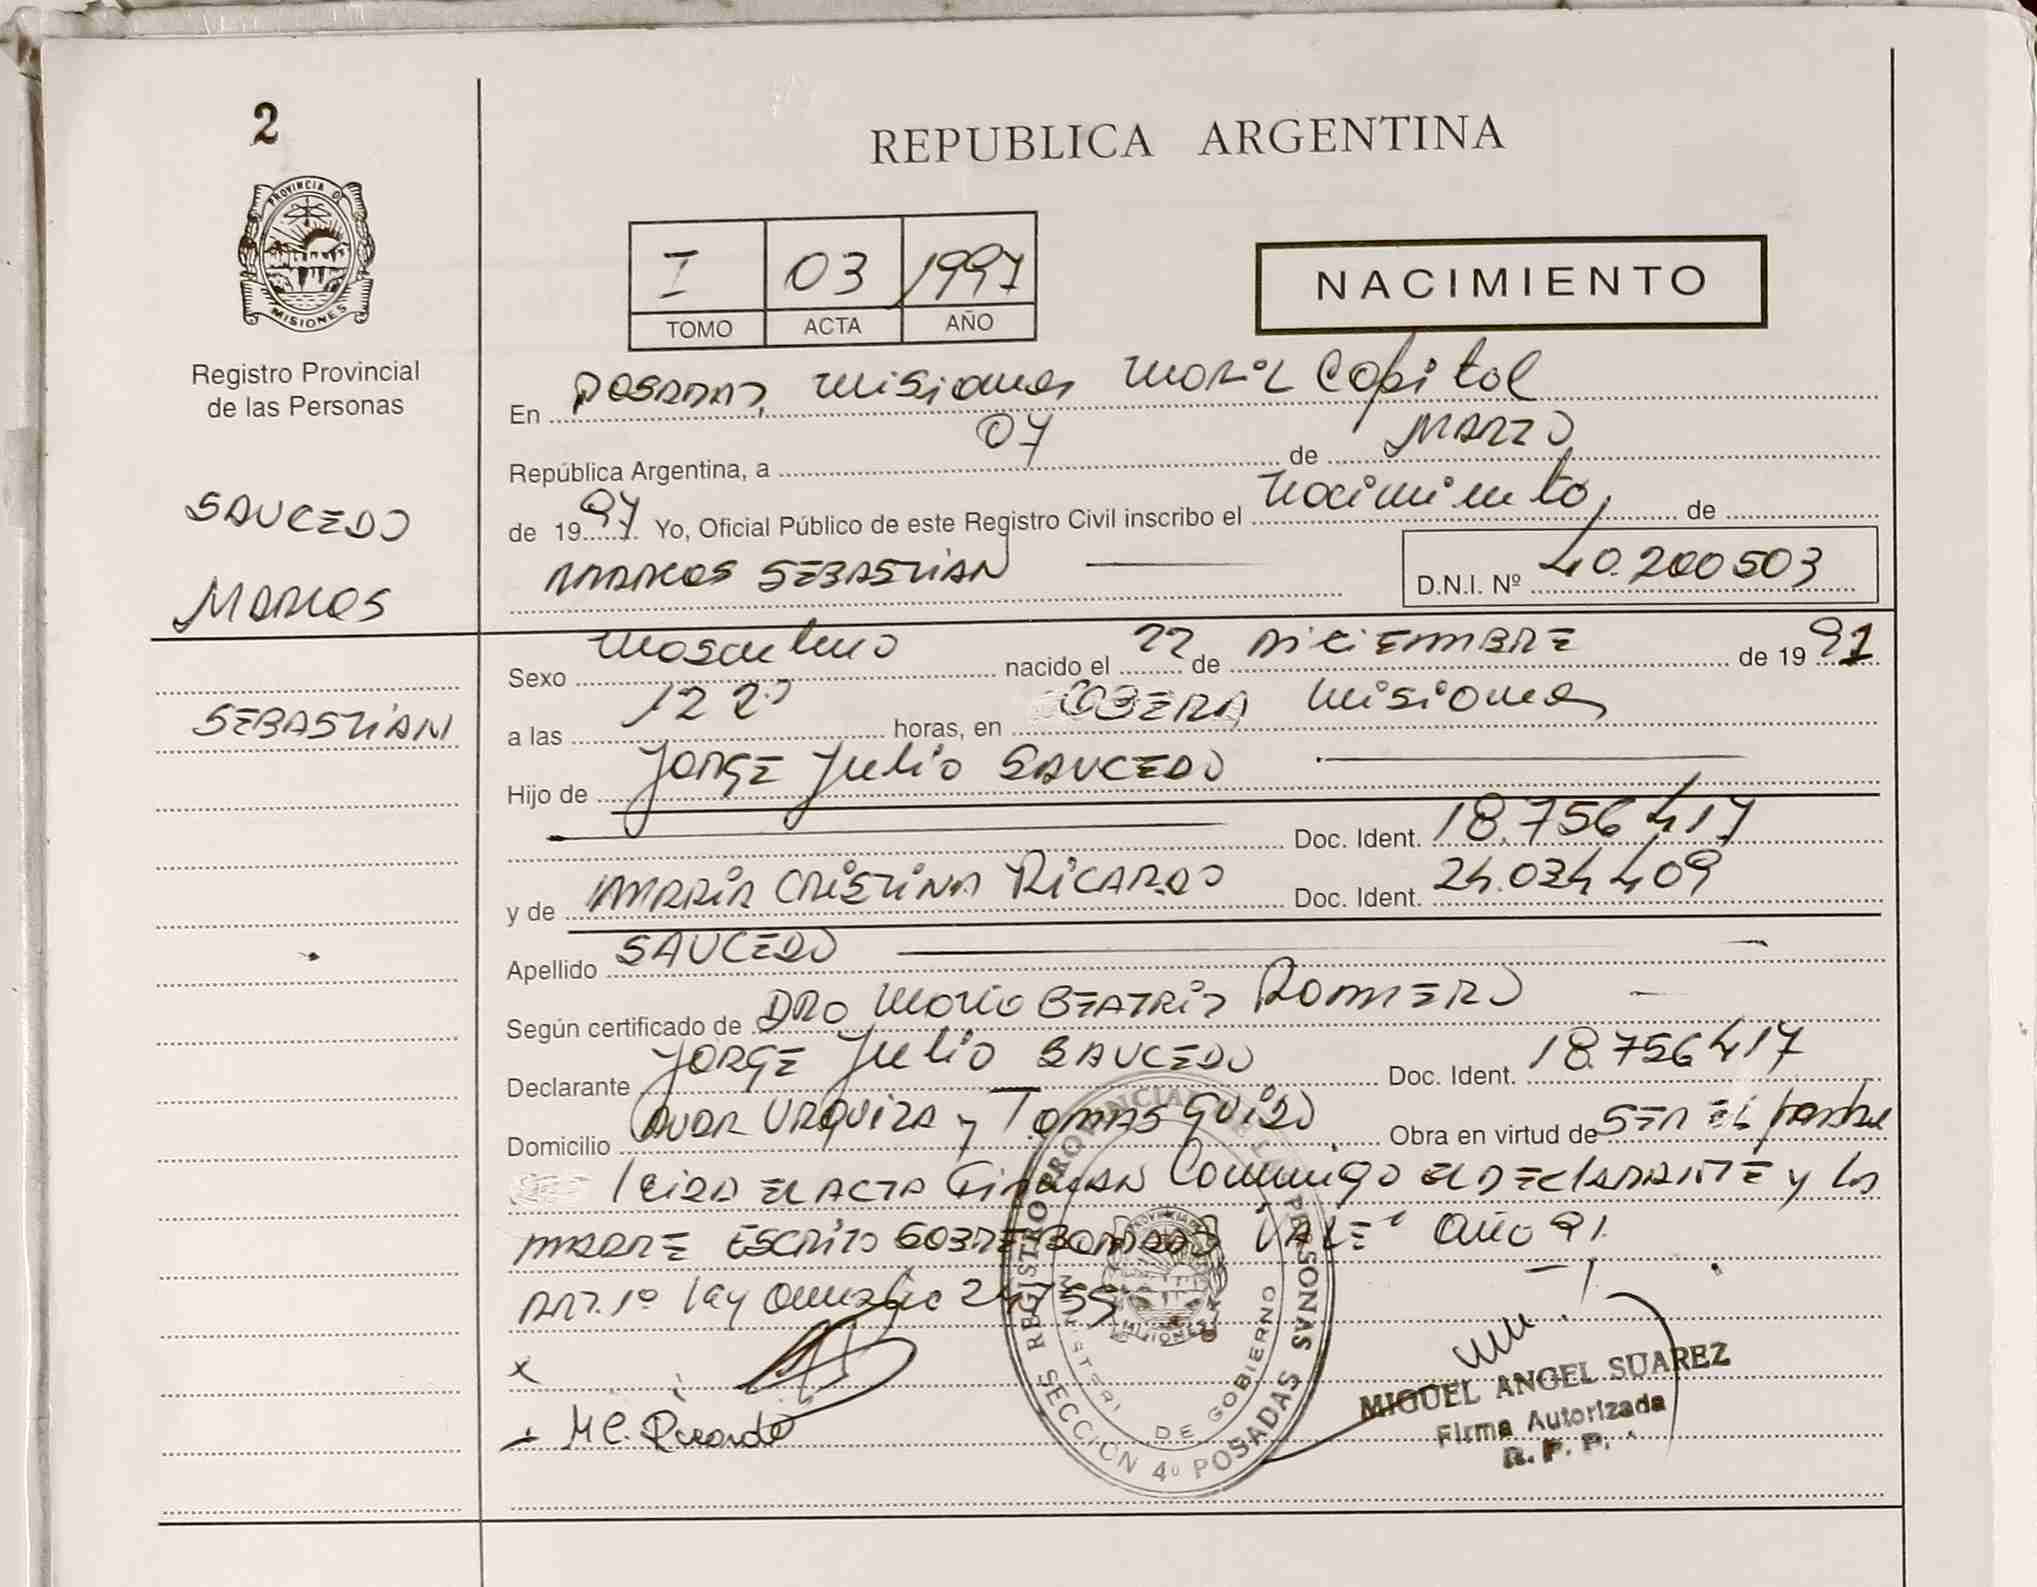 2
PROVINCIA DE
MISIONES
Registro Provincial
de las Personas
SAUCEDO
MARCOS
SEBASTIAN
REPUBLICA ARGENTINA
I 03 1997
TOMO ACTA AÑO
NACIMIENTO
En POSADAS, Misiones Capital
República Argentina, a 07 de MARZO
de 1997 Yo, Oficial Público de este Registro Civil inscribo el Nacimiento, de
MARCOS SEBASTIAN D.N.I. Nº 40.200503
Sexo Masculino nacido el 22 de DiCiEMBRE de 1991
a las 12 20 horas, en OBERA Misiones
Hijo de JORGE Julio SAUCEDO
Doc. Ident. 18.756417
y de MARIA CRISTINA RICARDO Doc. Ident. 24.034409
Apellido SAUCEDO
Según certificado de DRA Maria BEATRIZ ROMERO
Declarante JORGE Julio SAUCEDO Doc. Ident. 18.756417
Domicilio AVDA URQUIZA y TOMAS GUIDO Obra en virtud de SER EL padre
leida EL ACTA FIRMAN Conmigo el DEclARANTE y la
MADRE ESCRITO SOBRE BORRADO VALE Año 91.
ART. 1º ley 24755
x
M C. Ricardo
REGISTRO PROVINCIAL DE LAS PERSONAS
MINISTERIO DE GOBIERNO
SECCION 4º POSADAS
MISIONES
MIGUEL ANGEL SUAREZ
Firma Autorizada
R. P. P.